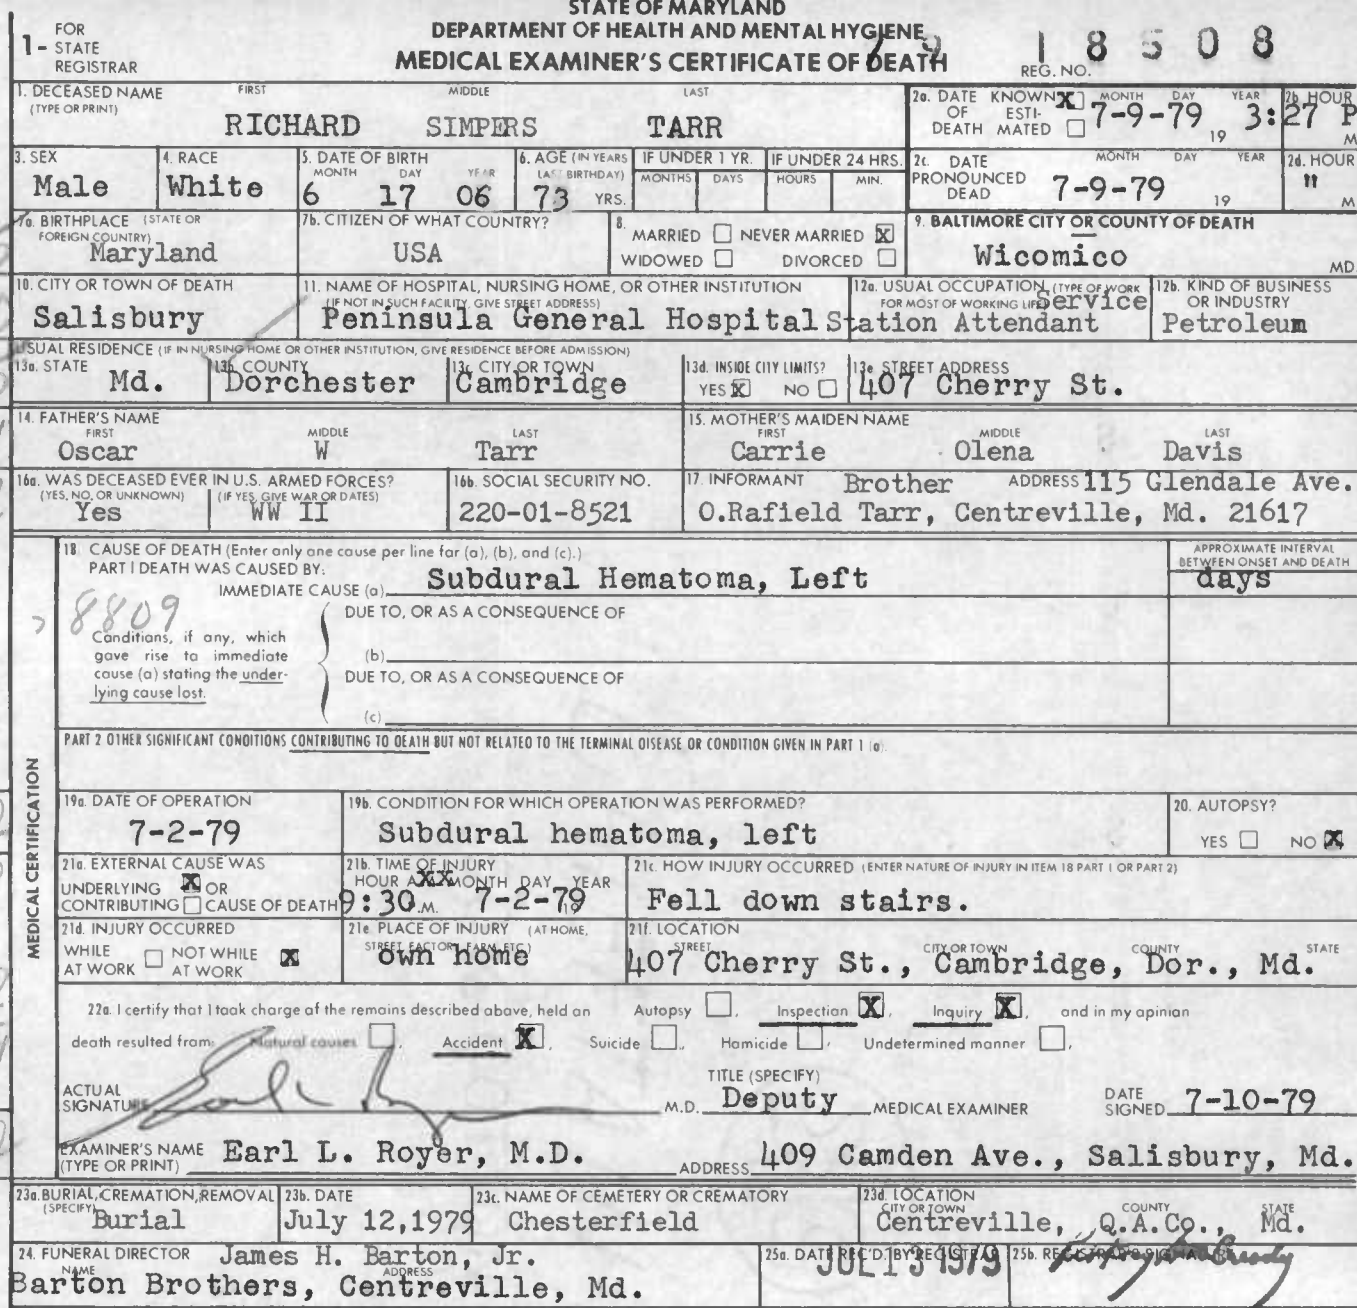 STATE OF MARYLAND
DEPARTMENT OF HEALTH AND MENTAL HYGIENE
MEDICAL EXAMINER'S CERTIFICATE OF DEATH
1- FOR STATE REGISTRAR
79 18508
REG. NO.
1. DECEASED NAME (TYPE OR PRINT) FIRST MIDDLE LAST
RICHARD SIMPERS TARR
2a. DATE OF DEATH KNOWN X ESTIMATED MONTH DAY YEAR 7-9-79 19
2b. HOUR 3:27 P M
3. SEX Male
4. RACE White
5. DATE OF BIRTH MONTH DAY YEAR 6 17 06
6. AGE (IN YEARS LAST BIRTHDAY) 73 YRS.
IF UNDER 1 YR. MONTHS DAYS
IF UNDER 24 HRS. HOURS MIN.
2c. DATE PRONOUNCED DEAD MONTH DAY YEAR 7-9-79 19
2d. HOUR " M
7a. BIRTHPLACE (STATE OR FOREIGN COUNTRY) Maryland
7b. CITIZEN OF WHAT COUNTRY? USA
8. MARRIED NEVER MARRIED X
WIDOWED DIVORCED
9. BALTIMORE CITY OR COUNTY OF DEATH Wicomico MD.
10. CITY OR TOWN OF DEATH Salisbury
11. NAME OF HOSPITAL, NURSING HOME, OR OTHER INSTITUTION (IF NOT IN SUCH FACILITY, GIVE STREET ADDRESS) Peninsula General Hospital
12a. USUAL OCCUPATION (TYPE OF WORK FOR MOST OF WORKING LIFE) Service Station Attendant
12b. KIND OF BUSINESS OR INDUSTRY Petroleum
USUAL RESIDENCE (IF IN NURSING HOME OR OTHER INSTITUTION, GIVE RESIDENCE BEFORE ADMISSION)
13a. STATE Md.
13b. COUNTY Dorchester
13c. CITY OR TOWN Cambridge
13d. INSIDE CITY LIMITS? YES X NO
13e. STREET ADDRESS 407 Cherry St.
14. FATHER'S NAME FIRST MIDDLE LAST
Oscar W Tarr
15. MOTHER'S MAIDEN NAME FIRST MIDDLE LAST
Carrie Olena Davis
16a. WAS DECEASED EVER IN U.S. ARMED FORCES? (YES, NO, OR UNKNOWN) Yes (IF YES, GIVE WAR OR DATES) WW II
16b. SOCIAL SECURITY NO. 220-01-8521
17. INFORMANT Brother ADDRESS 115 Glendale Ave.
O.Rafield Tarr, Centreville, Md. 21617
MEDICAL CERTIFICATION
18. CAUSE OF DEATH (Enter only one cause per line for (a), (b), and (c).)
PART I DEATH WAS CAUSED BY:
IMMEDIATE CAUSE (a) Subdural Hematoma, Left
APPROXIMATE INTERVAL BETWEEN ONSET AND DEATH days
8809
Conditions, if any, which gave rise to immediate cause (a) stating the underlying cause last.
DUE TO, OR AS A CONSEQUENCE OF
(b)
DUE TO, OR AS A CONSEQUENCE OF
(c)
PART 2 OTHER SIGNIFICANT CONDITIONS CONTRIBUTING TO DEATH BUT NOT RELATED TO THE TERMINAL DISEASE OR CONDITION GIVEN IN PART 1 (a)
19a. DATE OF OPERATION 7-2-79
19b. CONDITION FOR WHICH OPERATION WAS PERFORMED? Subdural hematoma, left
20. AUTOPSY? YES NO X
21a. EXTERNAL CAUSE WAS UNDERLYING X OR CONTRIBUTING CAUSE OF DEATH
21b. TIME OF INJURY HOUR A.M. MONTH DAY YEAR 9:30 .M. 7-2-79 19
21c. HOW INJURY OCCURRED (ENTER NATURE OF INJURY IN ITEM 18 PART 1 OR PART 2) Fell down stairs.
21d. INJURY OCCURRED WHILE AT WORK NOT WHILE AT WORK X
21e. PLACE OF INJURY (AT HOME, STREET, FACTORY, FARM, ETC.) own home
21f. LOCATION STREET CITY OR TOWN COUNTY STATE
407 Cherry St., Cambridge, Dor., Md.
22a. I certify that I took charge of the remains described above, held an Autopsy , Inspection X, Inquiry X, and in my opinion
death resulted from: Natural causes , Accident X, Suicide , Homicide , Undetermined manner ,
ACTUAL SIGNATURE M.D. TITLE (SPECIFY) Deputy MEDICAL EXAMINER DATE SIGNED 7-10-79
EXAMINER'S NAME (TYPE OR PRINT) Earl L. Royer, M.D. ADDRESS 409 Camden Ave., Salisbury, Md.
23a. BURIAL, CREMATION, REMOVAL (SPECIFY) Burial
23b. DATE July 12,1979
23c. NAME OF CEMETERY OR CREMATORY Chesterfield
23d. LOCATION CITY OR TOWN COUNTY STATE
Centreville, Q.A.Co., Md.
24. FUNERAL DIRECTOR NAME ADDRESS
James H. Barton, Jr.
Barton Brothers, Centreville, Md.
25a. DATE REC'D. BY REGISTRAR JUL 13 1979
25b. REGISTRAR'S SIGNATURE